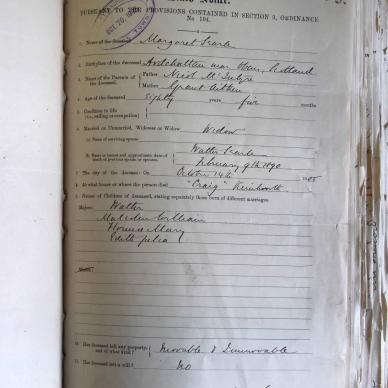 PURSUANT TO THE PROVISIONS CONTAINED IN SECTION 9, ORDINANCE
No. 104.
1. Name of the deceased Margaret Searle
2. Birthplace of the deceased Ardchattan near Oban, Scotland
3. Name of the Parents of the deceased. Father Nicol McIntyre
Mother Grant Aitken
4. Age of the deceased Eighty years five months
5. Condition in life
(i.e., calling or occupation)
6. Married or Unmarried, Widower or Widow Widow
Name of surviving spouse
Name or names and approximate date of death of previous spouse or spouses. Walter Searle
February 9th 1890
7. The day of the decease: On October 14th 1905
8. At what house or where the person died "Craig" Kenilworth
9. Names of Children of deceased, stating separately those born of different marriages.
Majors: Walter
Malcolm William
Florence Mary
Edith
Minors:
10. Has deceased left any property, and of what kind? Movable & Immovable
11. Has deceased left a will? No